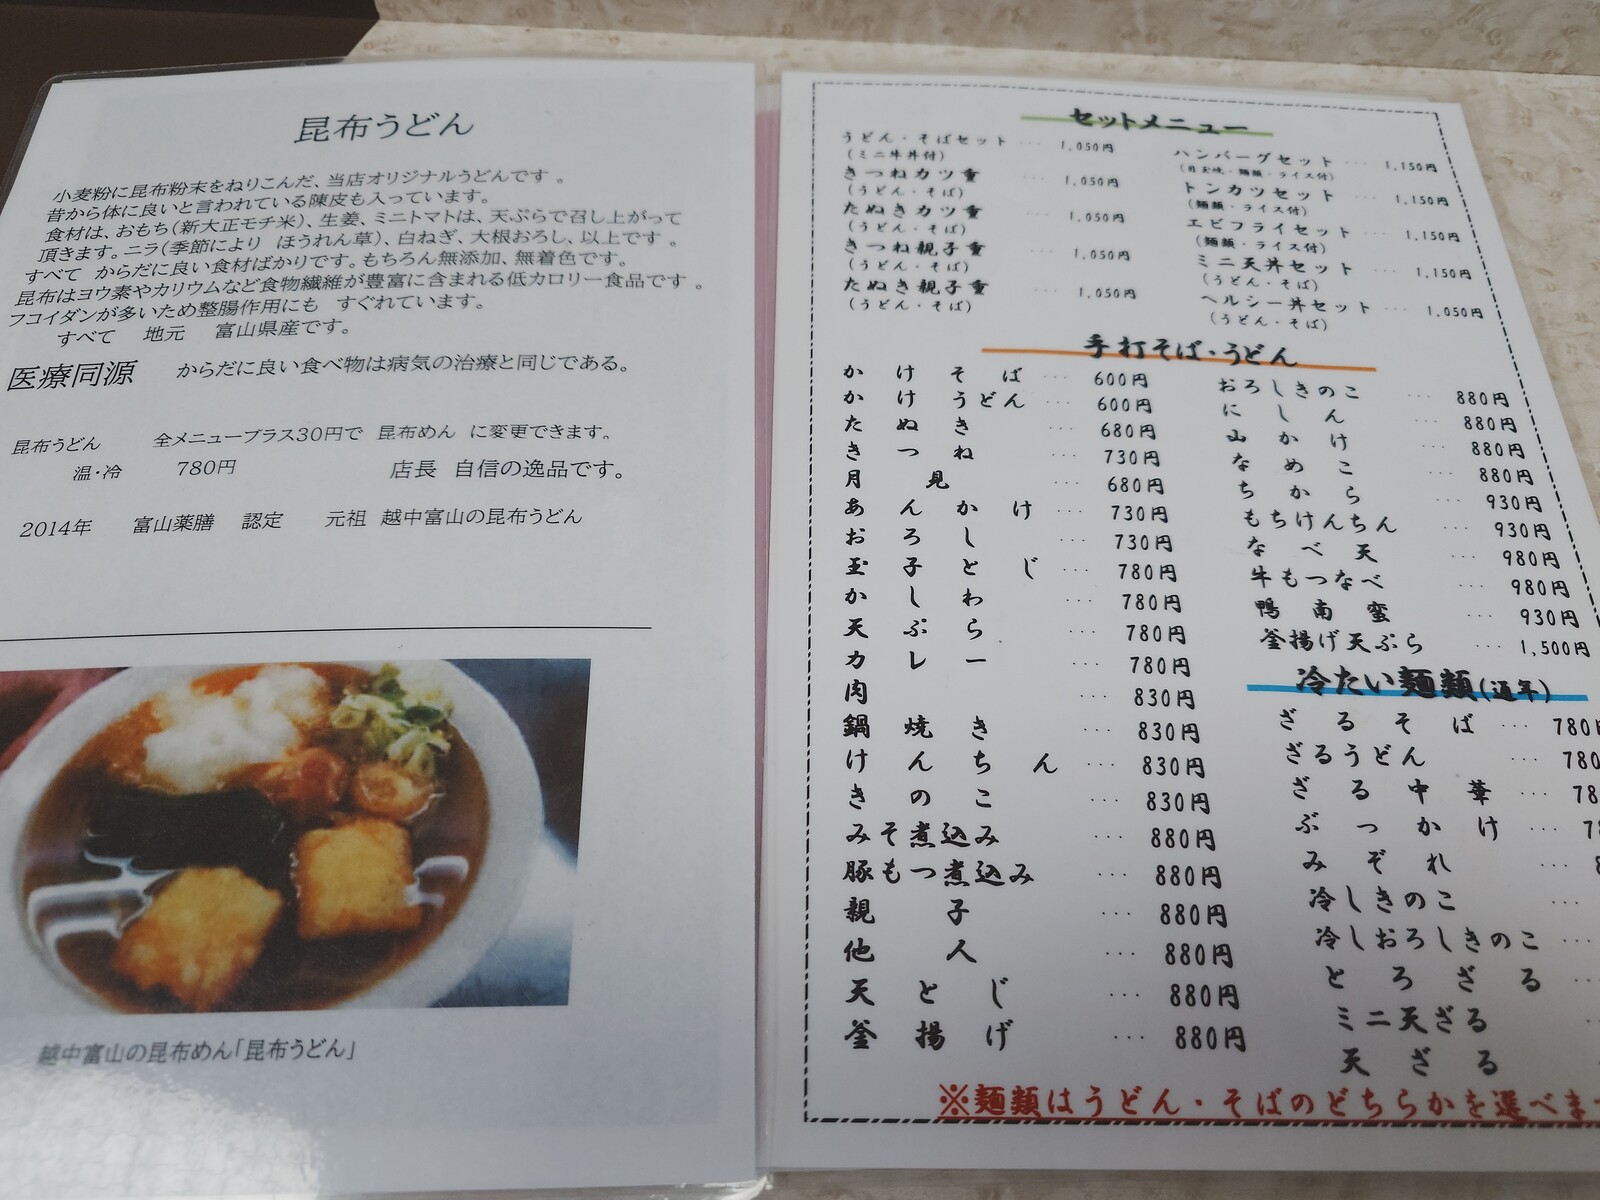 昆布うどん
小麦粉に昆布粉末をねりこんだ、当店オリジナルうどんです 。
昔から体に良いと言われている陳皮も入っています。
食材は、おもち（新大正モチ米）、生姜、ミニトマトは、天ぷらで召し上がって
頂きます。ニラ（季節により ほうれん草）、白ねぎ、大根おろし、以上です 。
すべて からだに良い食材ばかりです。もちろん無添加、無着色です。
昆布はヨウ素やカリウムなど食物繊維が豊富に含まれる低カロリー食品です 。
フコイダンが多いため整腸作用にも すぐれています。
すべて 地元 富山県産です。
医療同源 からだに良い食べ物は病気の治療と同じである。
昆布うどん 全メニュープラス30円で 昆布めん に変更できます。
温・冷 780円 店長 自信の逸品です。
2014年 富山薬膳 認定 元祖 越中富山の昆布うどん
越中富山の昆布めん「昆布うどん」
セットメニュー
うどん・そばセット … 1,050円
（ミニ牛丼付）
きつねカツ重 … 1,050円
（うどん・そば）
たぬきカツ重 … 1,050円
（うどん・そば）
きつね親子重 … 1,050円
（うどん・そば）
たぬき親子重 … 1,050円
（うどん・そば）
ハンバーグセット … 1,150円
（目玉焼・麺類・ライス付）
トンカツセット … 1,150円
（麺類・ライス付）
エビフライセット … 1,150円
（麺類・ライス付）
ミニ天丼セット … 1,150円
（うどん・そば）
ヘルシー丼セット … 1,050円
（うどん・そば）
手打そば・うどん
かけそば … 600円
かけうどん … 600円
たぬき … 680円
きつね … 730円
月見 … 680円
あんかけ … 730円
おろし … 730円
玉子とじ … 780円
かしわ … 780円
天ぷら … 780円
カレー … 780円
肉 … 830円
鍋焼き … 830円
けんちん … 830円
きのこ … 830円
みそ煮込み … 880円
豚もつ煮込み … 880円
親子 … 880円
他人 … 880円
天とじ … 880円
釜揚げ … 880円
おろしきのこ … 880円
にしん … 880円
山かけ … 880円
なめこ … 880円
ちから … 930円
もちけんちん … 930円
なべ天 … 980円
牛もつなべ … 980円
鴨南蛮 … 930円
釜揚げ天ぷら … 1,500円
冷たい麺類（通年）
ざるそば … 780円
ざるうどん … 780
ざる中華 … 78
ぶっかけ … 7
みぞれ …
冷しきのこ …
冷しおろしきのこ …
とろざる …
ミニ天ざる
天ざる
※麺類はうどん・そばのどちらかを選べま